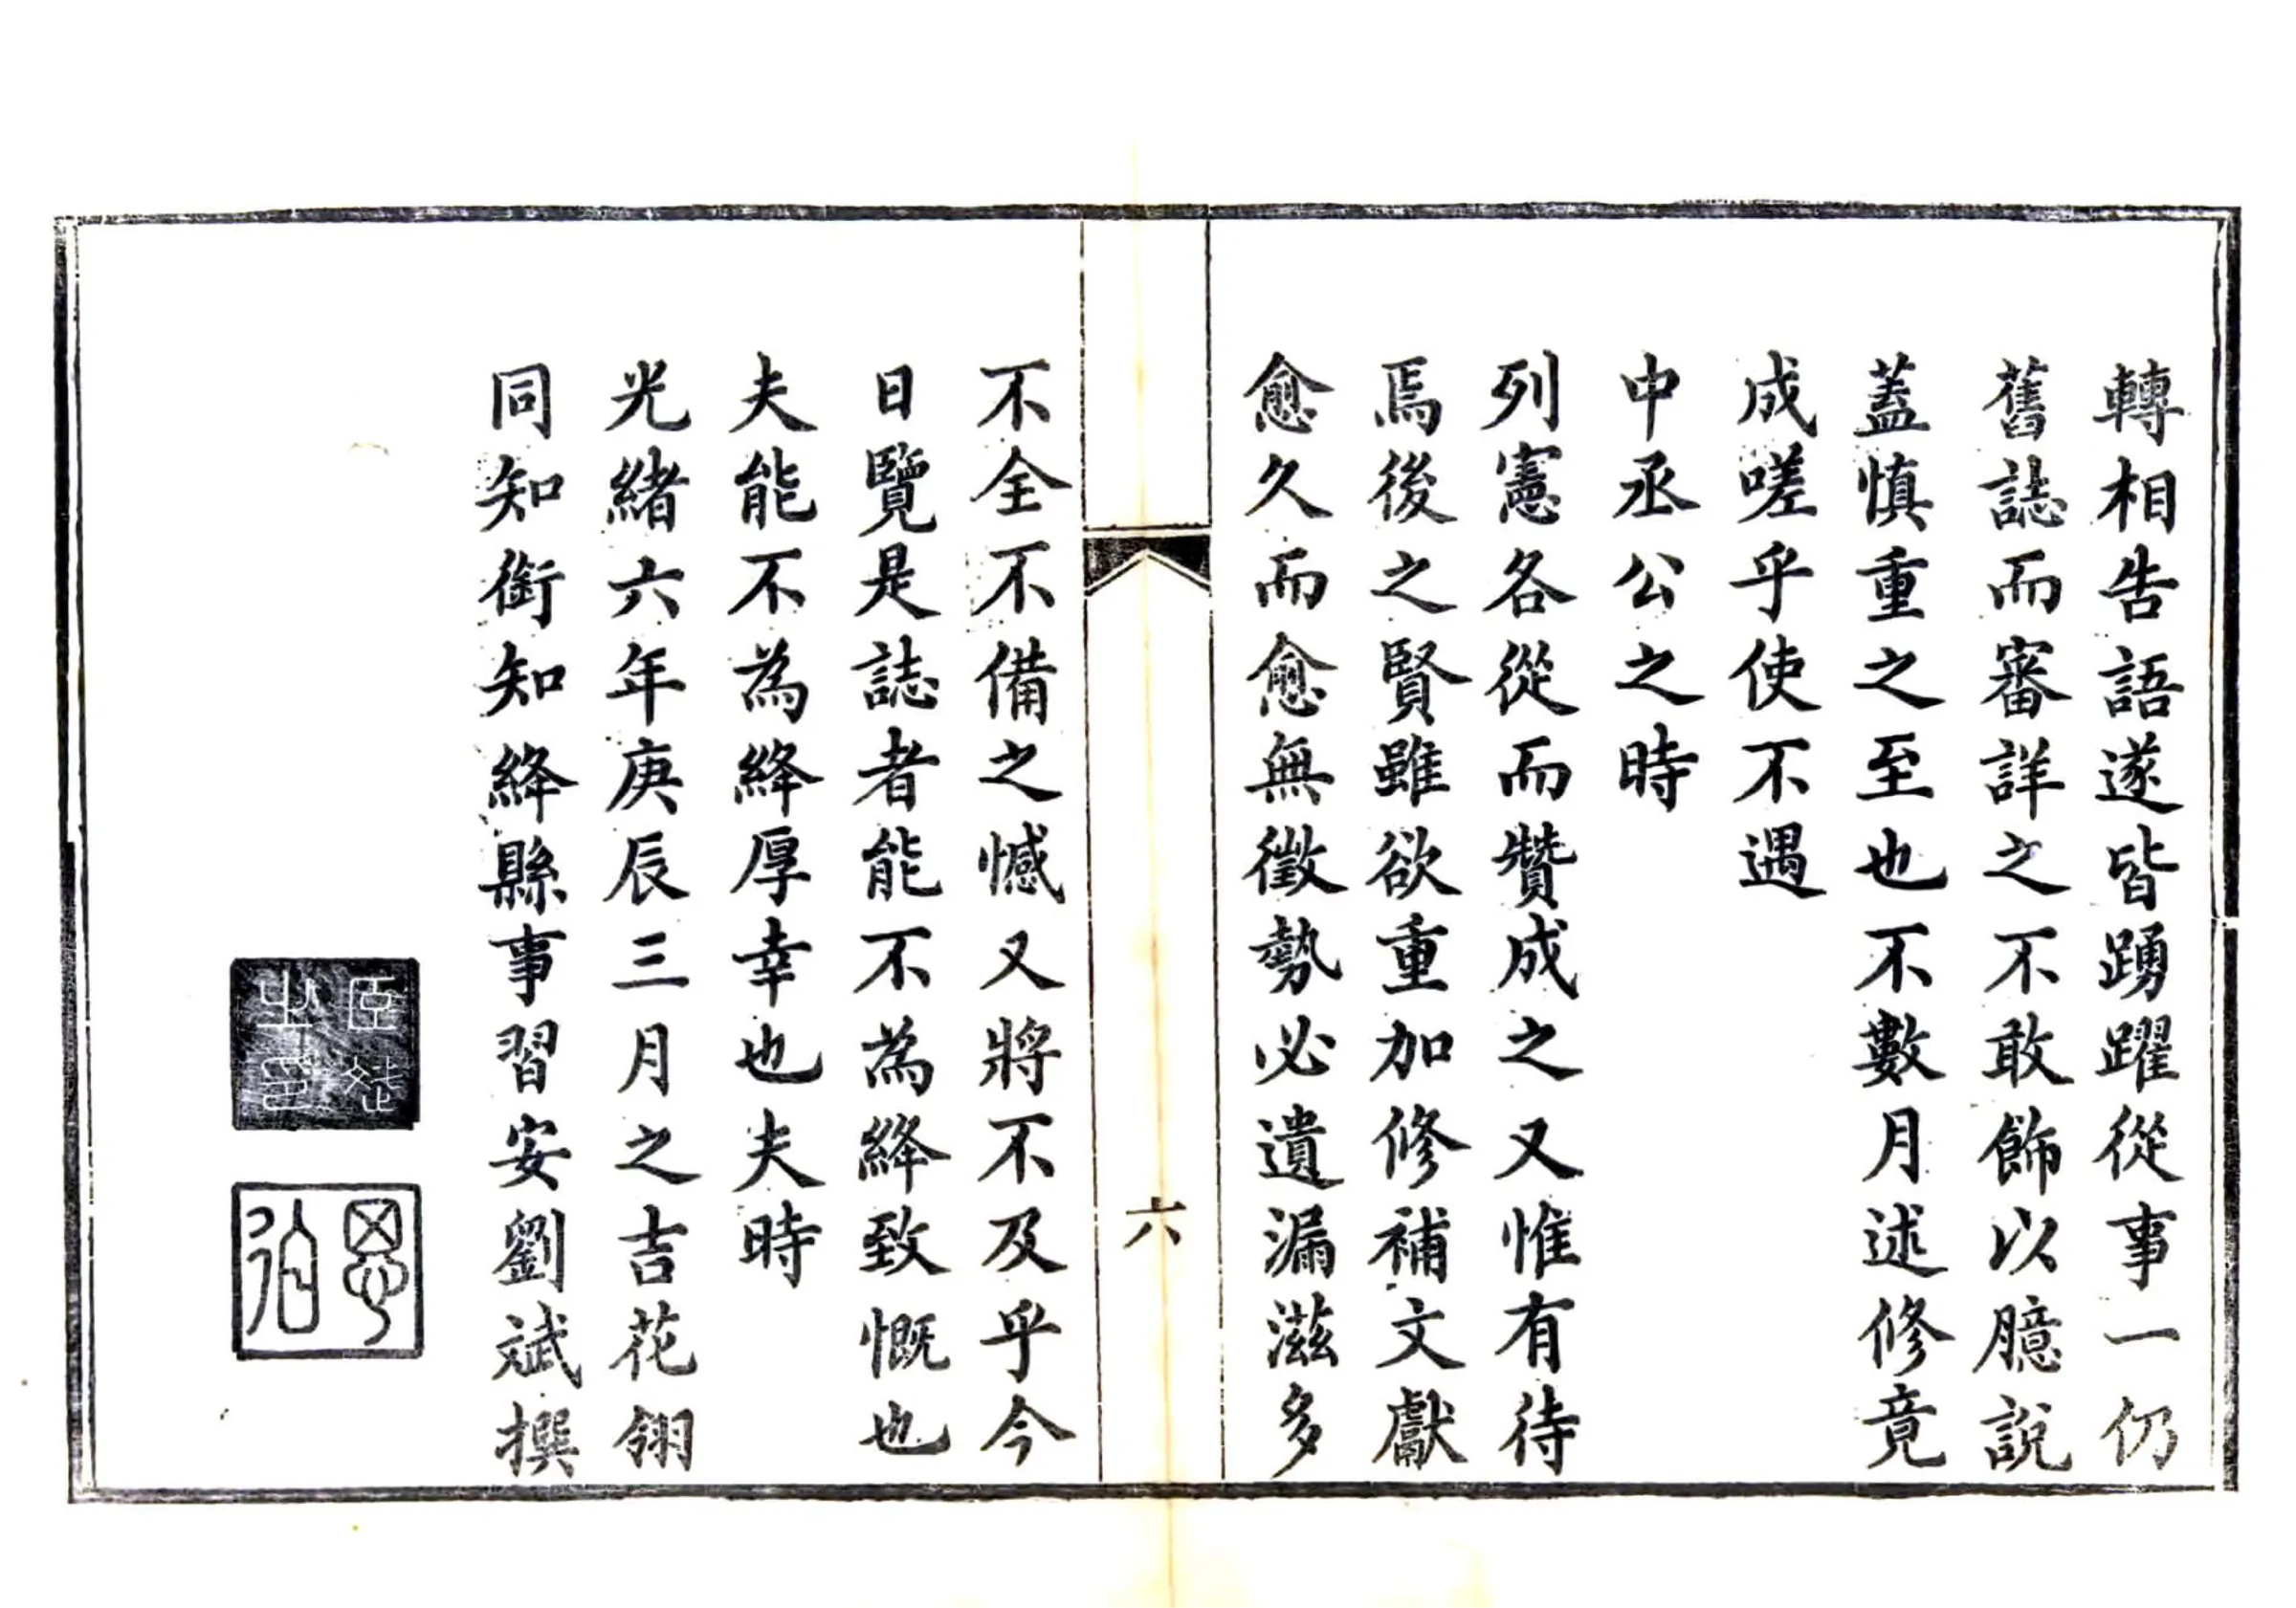 轉相告語遂皆踴躍從事一仍
舊誌而審詳之不敢飾以臆說
蓋慎重之至也不數月述修竟
成嗟乎使不遇
中丞公之時
列憲各從而贊成之又惟有待
焉後之賢雖欲重加修補文獻
愈久而愈無徵勢必遺漏滋多
六
不全不備之憾又將不及乎今
日覽是誌者能不為絳致慨也
夫能不為絳厚幸也夫時
光緒六年庚辰三月之吉花翎
同知銜知絳縣事習安劉斌撰